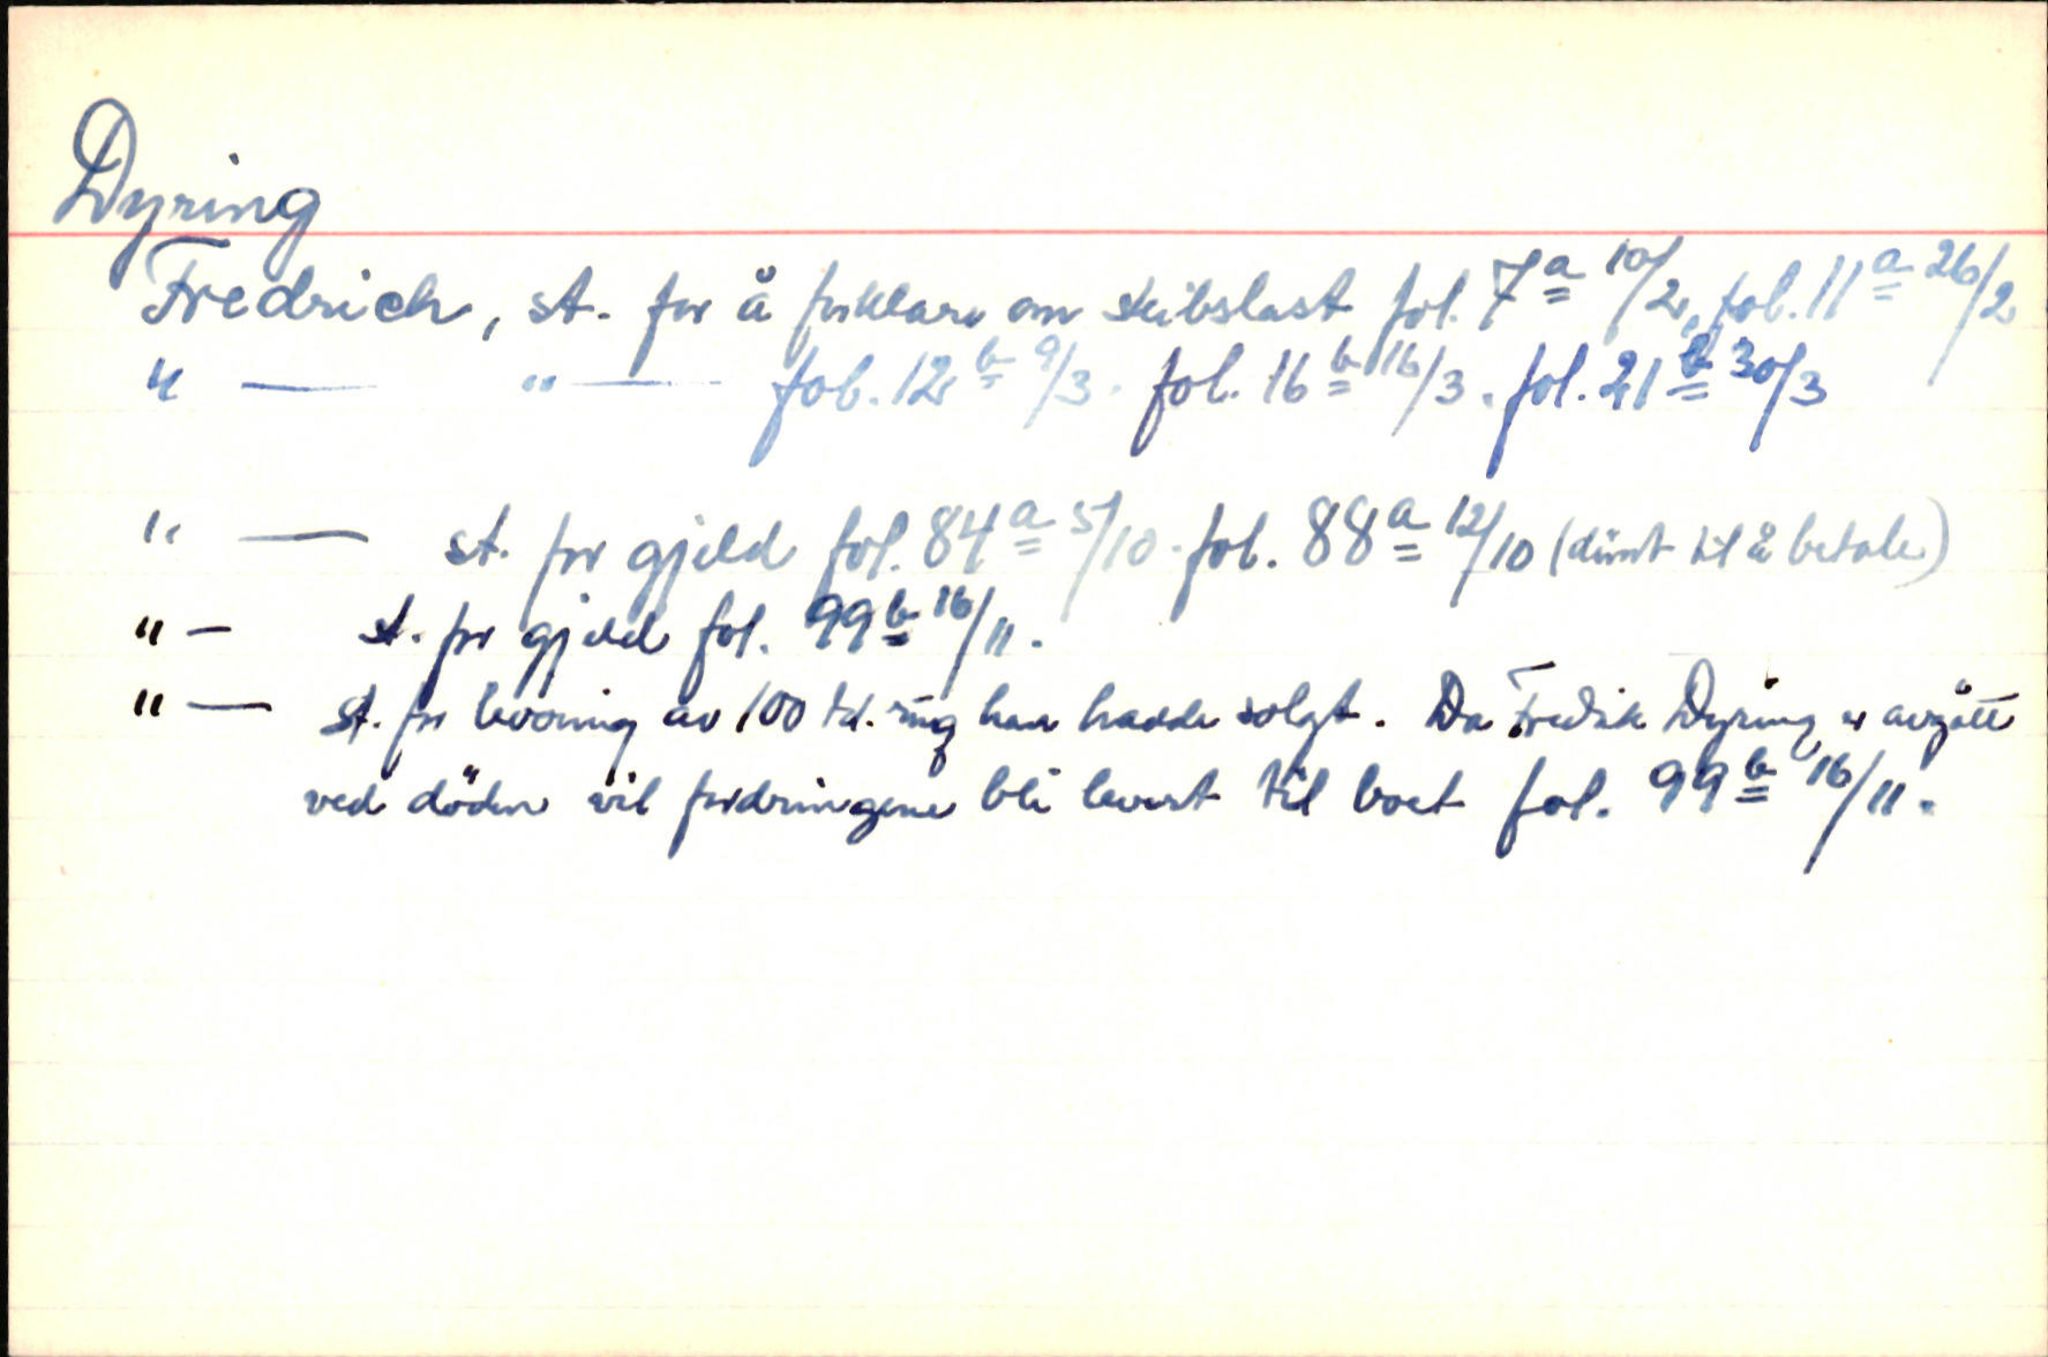 Dyring
Fredrich, st. for å forklare om skibslast fol. 7a 10/2, fol. 11a 26/2
" — " — fol. 12b 9/3. fol. 16b 16/3. fol. 21b 30/3
" — st. for gjeld fol. 84a 5/10. fol. 88a 12/10 (dömt til å betale)
" — st. for gjeld fol. 99b 16/11.
" — st. for levering av 100 td. rug han hadde solgt. Da Fredrik Dyring er avgått
ved döden vil fordringene bli levert til boet fol. 99b 16/11.